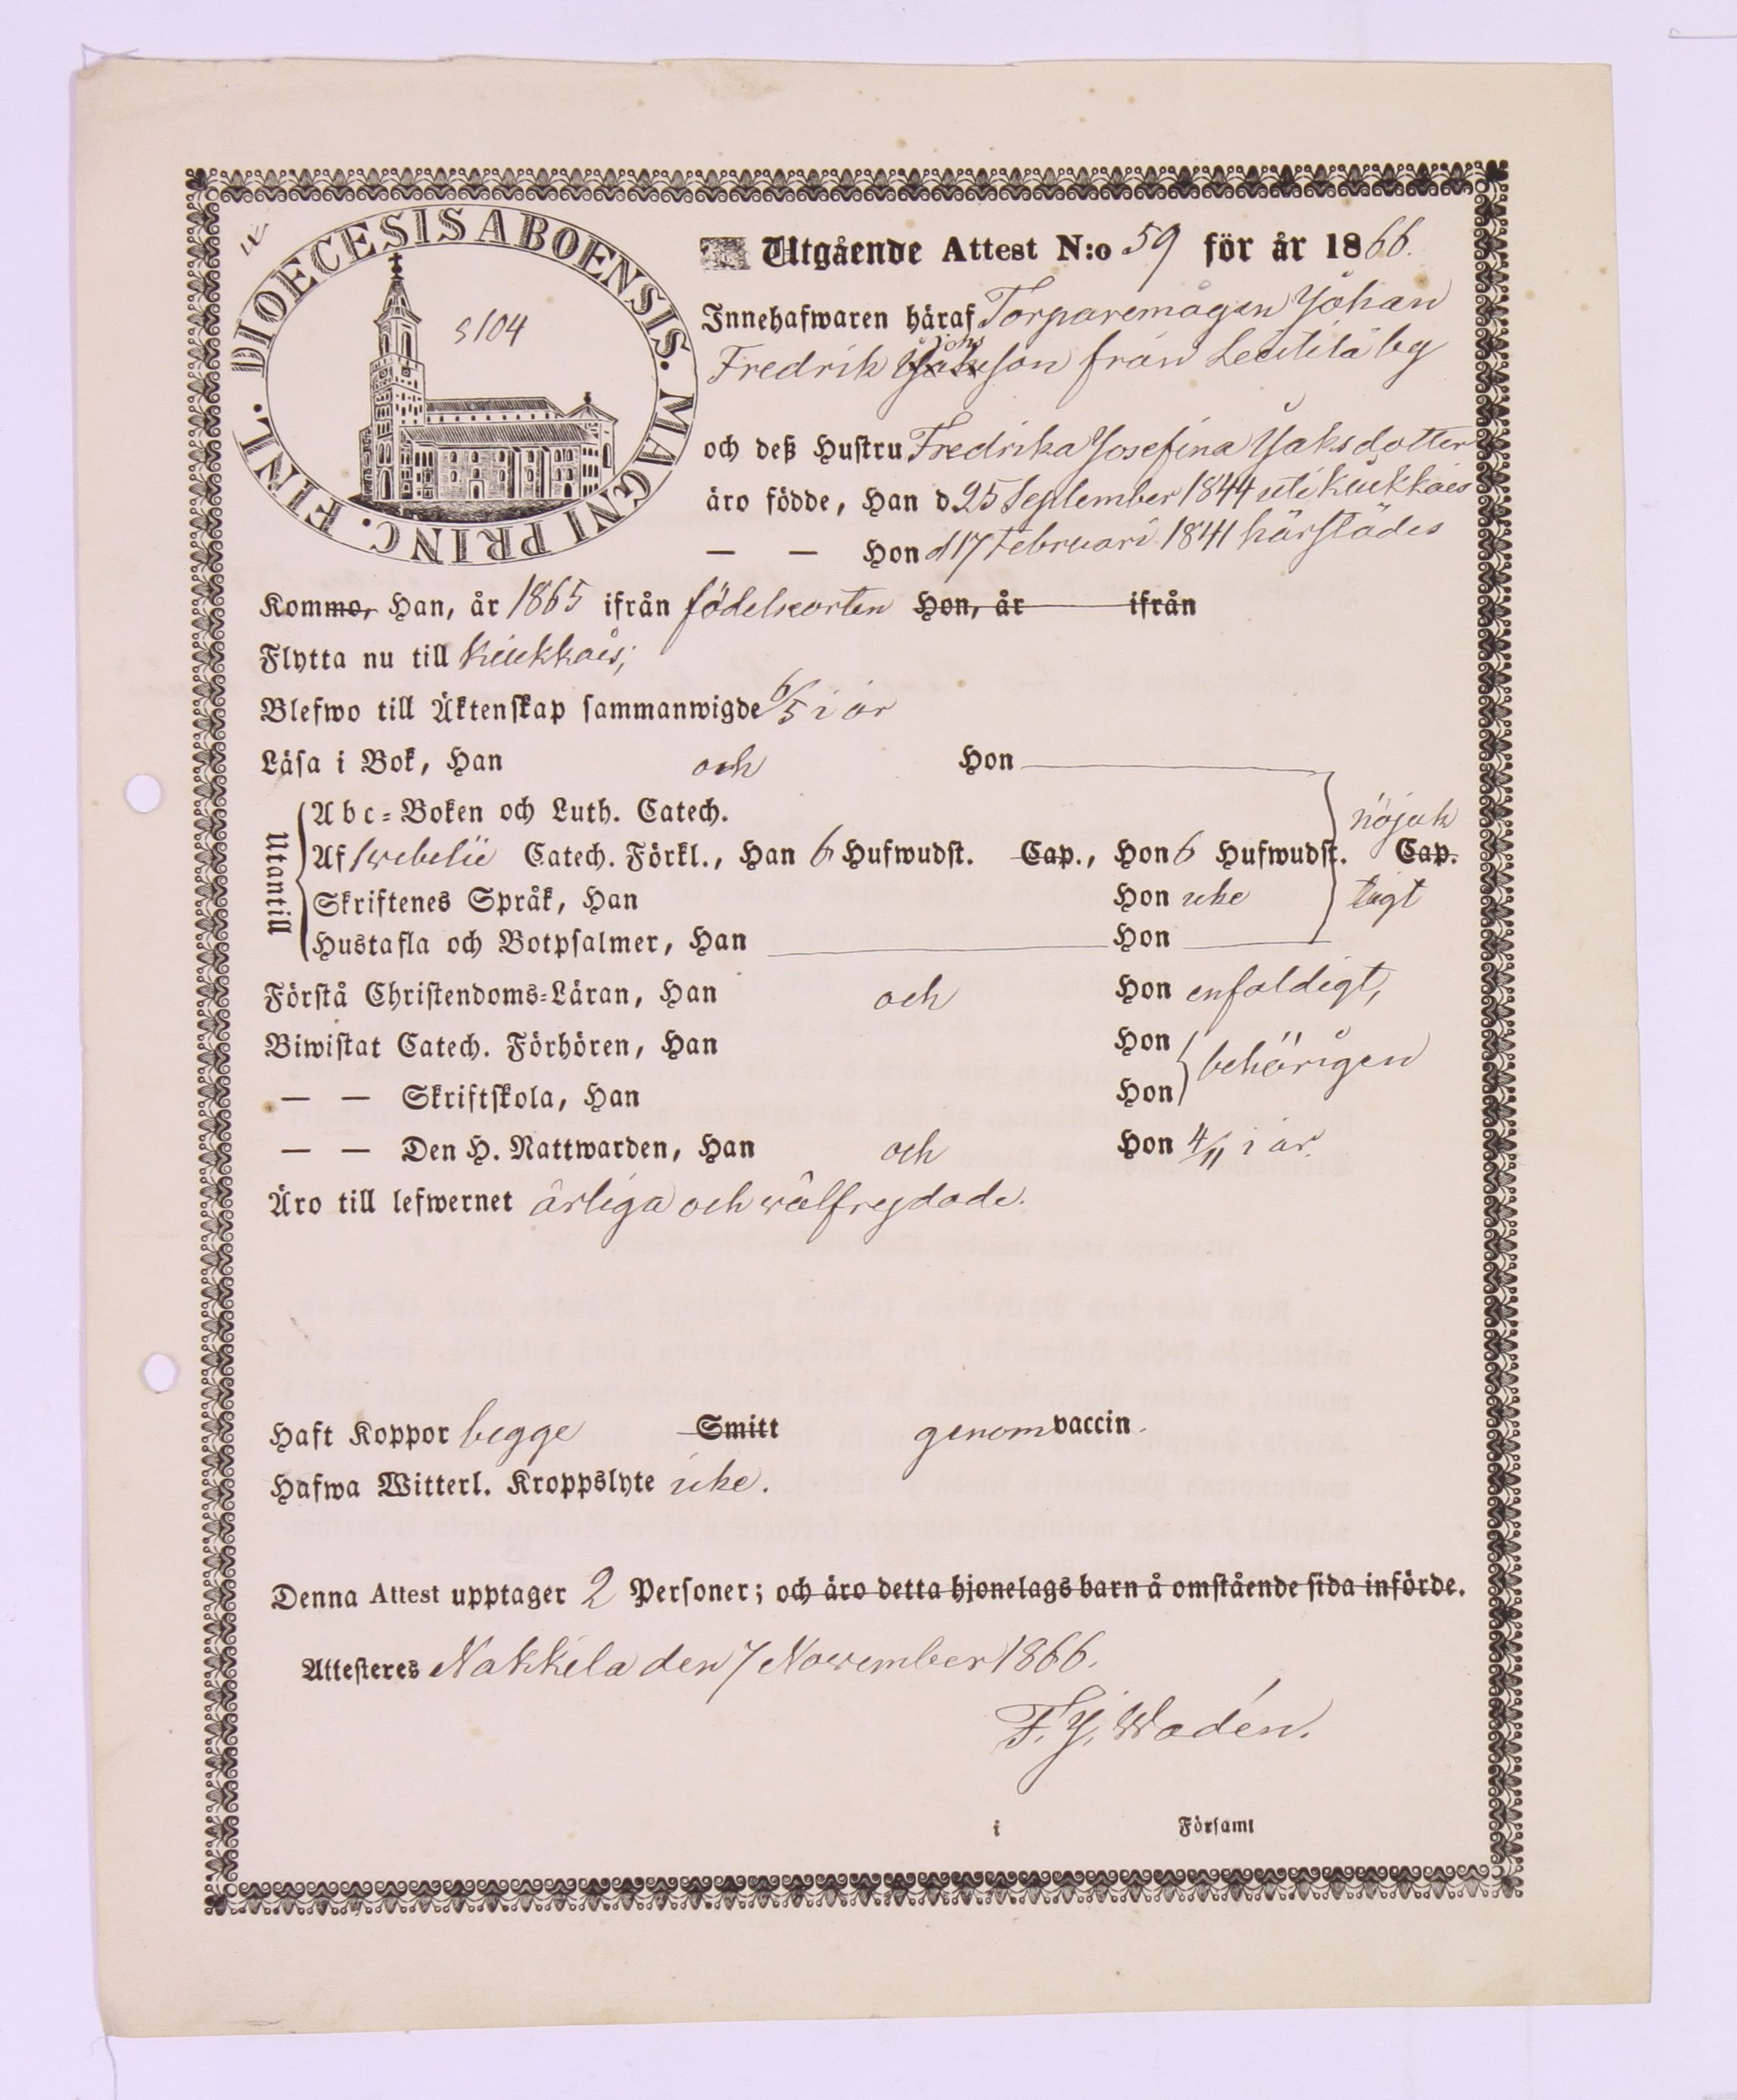 DIOECESIS ABOENSIS. MAGNI PRINC. FINL.
S104
Utgående Attest N:o 59 för år 1866.
Innehafwaren häraf Torparemågen Johan
Johs
Fredrik son från Leistilä by
och deß Hustru Fredrika Josefina Jaksdotter
äro födde, Han d 25 September 1844 uti Kiukkais
— — Hon d 17 Februari 1841 härstädes
Kommo, Han, år 1865 ifrån födelseorten Hon, år ifrån
Flytta nu till Kiukkais;
Blefwo till Äktenskap sammanwigde 6/5 i år
Läsa i Bok, Han och Hon
Utantill
Abc-Boken och Luth. Catech. nöjak
Af Swebelii Catech. Förkl., Han 6 Hufwudst. Cap., Hon 6 Hufwudst. Cap.
Skriftenes Språk, Han Hon icke tigt
Hustafla och Botpsalmer, Han Hon
Förstå Christendoms-Läran, Han och Hon enfaldigt,
Biwistat Catech. Förhören, Han Hon behörigen
— — Skriftskola, Han Hon
— — Den H. Nattwarden, Han och Hon 4/11 i år.
Äro till lefwernet ärliga och wälfrejdade.
Haft Koppor begge Smitt genom vaccin.
Hafwa Witterl. Kroppslyte icke.
Denna Attest upptager 2 Personer; och äro detta hjonelags barn å omstående sida införde.
Attesteres Nakkila den 7 November 1866.
F. J. Wadén.
i Församl